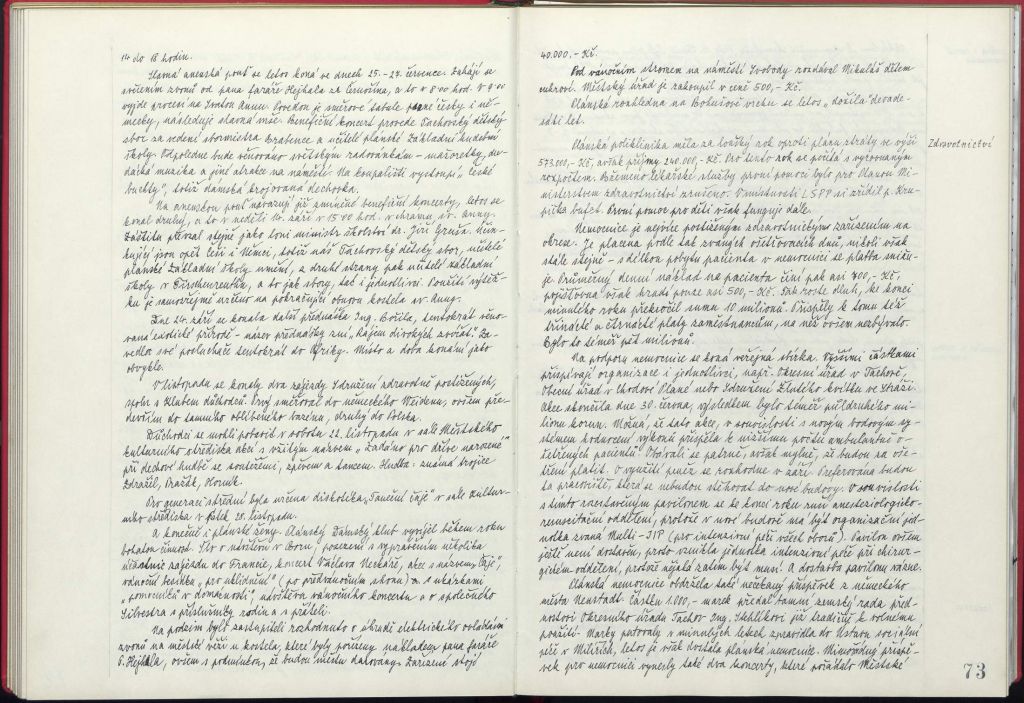 14 do 18 hodin.
Slavná anenská pouť se letos koná ve dnech 25.-27. července. Zahájí se
svěcením zvonů od pana faráře Hejhala za Černošína, a to v 8 00 hod. V 9 00
vyjde procesí na Svatou Annu. Poledon je směrové tabule psané česky i ně-
mecky, následuje slavná mše. Benefiční koncert provede Tachovský dětský
sbor za vedení sbormistra Brabence a učitelé plánské Základní hudební
školy. Odpoledne bude věnováno světským radovánkám - mažoretky, du-
dácká muzika a jiné atrakce na náměstí. Na koupališti vystoupí "České
buchty", totiž dámská krojovaná dechovka.
Na anenskou pouť navazují již zmíněné benefiční koncerty, letos se
konal druhý, a to v neděli 14. září v 15 00 hod. v chrámu sv. Anny.
Záštitu převzal stejně jako loni ministr školství dr. Jiří Gruša. Účin-
kující jsou opět Češi i Němci, totiž náš Tachovský dětský sbor, učitelé
plánské Základní školy umění, z druhé strany pak učitelé základní
školy v Tirschenreuthu, a to jak sbory, tak i jednotlivci. Použití výtěž-
ku je samozřejmě určeno na pokračující obnovu kostela sv. Anny.
Dne 24. září se konala další přednáška Ing. Bořila, tentokrát věno-
vaná exotické přírodě - název přednášky zní „Rájem divokých zvířat." Za-
vedla své posluchače tentokrát do Afriky. Místo a doba konání jako
obvykle.
V listopadu se konaly dva zájezdy Sdružení zdravotně postižených,
spolu s Klubem důchodců. Prvý směřoval do německého Weidenu, ovšem pře-
devším do tamního oblíbeného bazénu, druhý do Polska.
Důchodci se mohli pobavit v sobotu 22. listopadu v sále Městského
kulturního střediska akcí s vžitým názvem „Zadáno pro dříve narozené"
při dechové hudbě se soutěžemi, zpěvem a tancem. Hudba: známá trojice
Zdražil, Pražák, Slovák.
Pro generaci střední byla určena diskotéka „Taneční čaje" v sále kultur-
ního střediska v Pátek 28. listopadu.
A konečně i plánské ženy. Plánský Dámský klub vyvíjel během roku
bohatou činnost. Šlo o návštěvu v Boru, posezení s vyprávěním několika
účastnic zájezdu do Francie, koncert Václava Neckáře, akce s názvem „Čaje",
vánoční besídka „pro uklidnění" (po předvánočním shonu) s ukázkami
„pomocníků v domácnosti", návštěva vánočního koncertu a o společného
Silvestra s příslušníky rodin a s přáteli.
Na podzim bylo zastupiteli rozhodnuto o úhradě elektrického ovládání
zvonů na městské věži u kostela, které byly pořízeny nákladem pana faráře
P. Hejhala, ovšem s podmínkou, že budou městu darovány. Zařízení stojí
40.000.- Kč.
Pod vánočním stromem na náměstí Svobody rozdával Mikuláš dětem
cukroví. Městský úřad je zakoupil v ceně 500,- Kč.
Plánská rozhledna na Bohušově vrchu se letos „dožila" devade-
sáti let.
Zdravotnictví
Plánská poliklinika měla za loňský rok oproti plánu ztráty ve výši
573.000,- Kč, avšak příjmy 240.000,- Kč. Pro tento rok se počítá s vyrovnaným
rozpočtem. Břemeno lékařské služby první pomoci bylo pro Planou Mi-
nisterstvem zdravotnictví zrušeno. V místnosti LSPP si zřídil p. Kru-
pička bufet. První pomoc pro děti však funguje dále.
Nemocnice je nejvíce postiženým zdravotnickým zařízením na
okrese. Je placena podle tak zvaných ošetřovacích dnů, nikoli však
stále stejně - s délkou pobytu pacienta v nemocnici se platba snižu-
je. Průměrný denní náklad na pacienta činí pak asi 700,- Kč,
pojišťovna však hradí pouze asi 500,- Kč. Tak roste dluh, ke konci
minulého roku překročil sumu 10 milionů. Přispěly k tomu též
třinácté a čtrnácté platy zaměstnancům, na něž ovšem nezbývalo.
Bylo to téměř pět milionů.
Na podporu nemocnice se koná veřejná sbírka. Vyššími částkami
přispívají organizace i jednotlivci, např. Okresní úřad v Tachově,
Obecní úřad v Chodové Plané nebo Sdružení Zlatého kvítku ve Stráži.
Akce skončila dne 30. června, výsledkem bylo téměř půldruhého mi-
lionu korun. Možná, že tato akce, v souvislosti s novým bodovým sy-
stémem hodnocení výkonů přispěla k nižšímu počtu ambulantně o-
šetřených pacientů. Obávali se patrně, avšak mylně, že budou za oše-
tření platit. O využití peněz se rozhodne v září. Preferována budou
ta pracoviště, která se nebudou stěhovat do nové budovy. V souvislosti
s tímto rozestavěným pavilonem se ke konci roku ruší anesteziologicko-
resuscitační oddělení, protože v nové budově má být organizační jed-
notka zvaná Multi-JIP (pro intenzivní péči všech oborů). Pavilon ovšem
ještě není dostavěn, proto vznikla jednotka intenzivní péče při chirur-
gickém oddělení, protože nějaká zatím být musí. A dostavba pavilonu vázne.
Plánská nemocnice obdržela také nečekaný příspěvek z německého
města Neustadt. Částku 1.000,- marek předal tamní zemský rada před-
nostovi Okresního úřadu Tachov Ing. Stehlíkovi již tradičně k volnému
použití. Marky putovaly v minulých letech zpravidla do Ústavu sociální
péče v Milířích, letos je však dostala plánská nemocnice. Mimořádný příspě-
vek pro nemocnici vynesly také dva koncerty, které pořádalo Městské
73